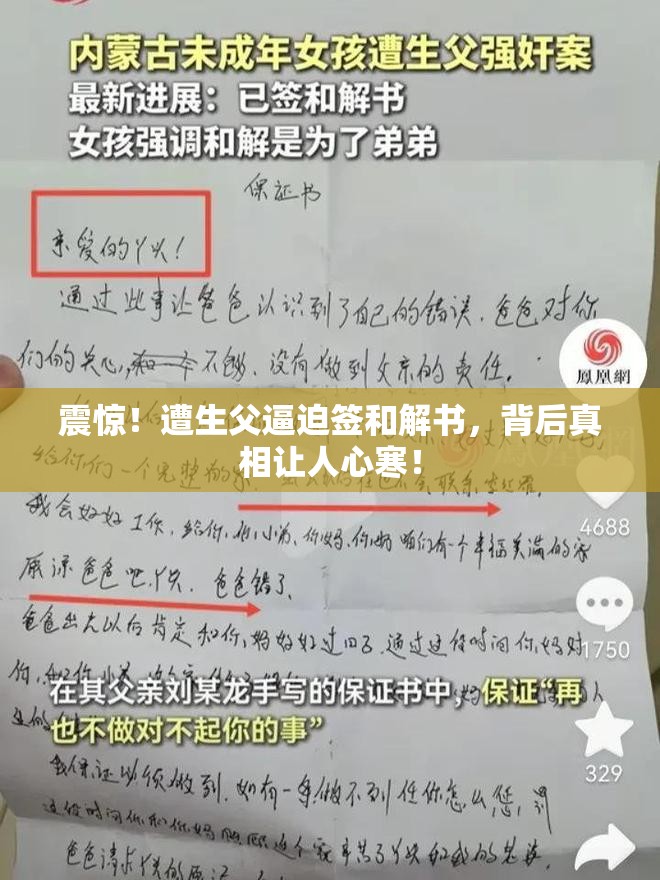 内蒙古未成年女孩遭生父强奸案
最新进展：已签和解书
女孩强调和解是为了弟弟
保证书
亲爱的丫头！
通过此事让爸爸认识到了自己的错误，爸爸对你
们的关心，不够，没有做到父亲的责任。
鳳凰網
震惊！遭生父逼迫签和解书，背后真
相让人心寒！
给你们一个完整的家
4688
我会好好工作，给你，你妈，咱们有一个幸福美满的家
原谅爸爸吧，丫头，爸爸错了、
爸爸出去以后肯定和你妈好好过日子，通过这段时间你妈对
1750
在其父亲刘某龙手写的保证书中，保证“再
也不做对不起你的事”
329
我保证必须做到，如有一条做不到任你怎么
这段时间你和你妈照顾这个家辛苦了
爸爸请求丫头的原谅